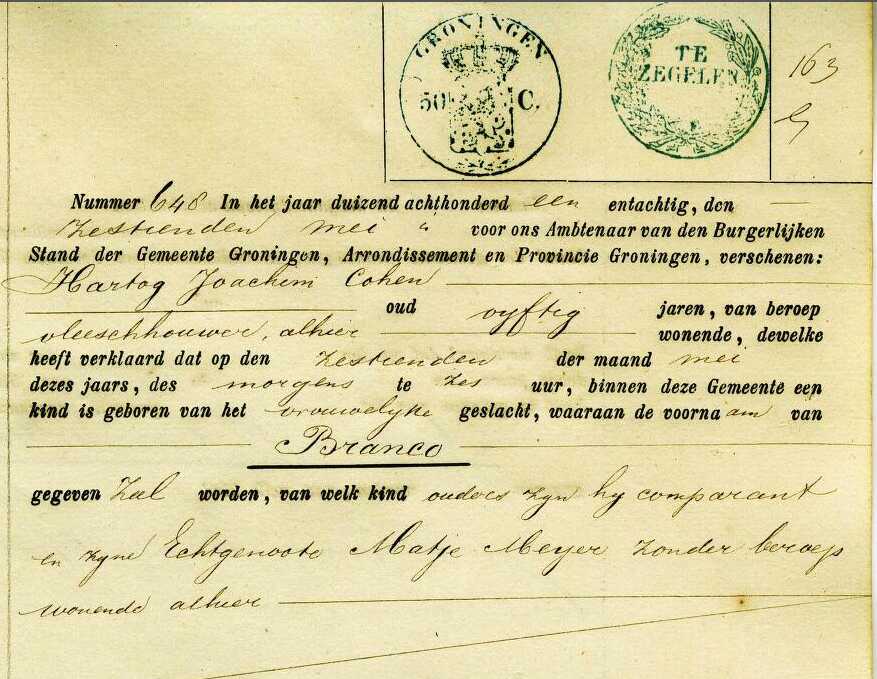 GRONINGEN
50 C.
TE
ZEGELEN
163
Nummer 648 In het jaar duizend achthonderd een entachtig, den
zestienden mei voor ons Ambtenaar van den Burgerlijken
Stand der Gemeente Groningen, Arrondissement en Provincie Groningen, verschenen:
Hartog Joachim Cohen
oud vyftig jaren, van beroep
vleeschhouwer, alhier wonende, dewelke
heeft verklaard dat op den zestienden der maand mei
dezes jaars, des morgens te zes uur, binnen deze Gemeente een
kind is geboren van het vrouwelyke geslacht, waaraan de voornaam van
Branco
gegeven zal worden, van welk kind ouders zyn hy comparant
en zyne Echtgenoote Matje Meyer zonder beroep
wonende alhier